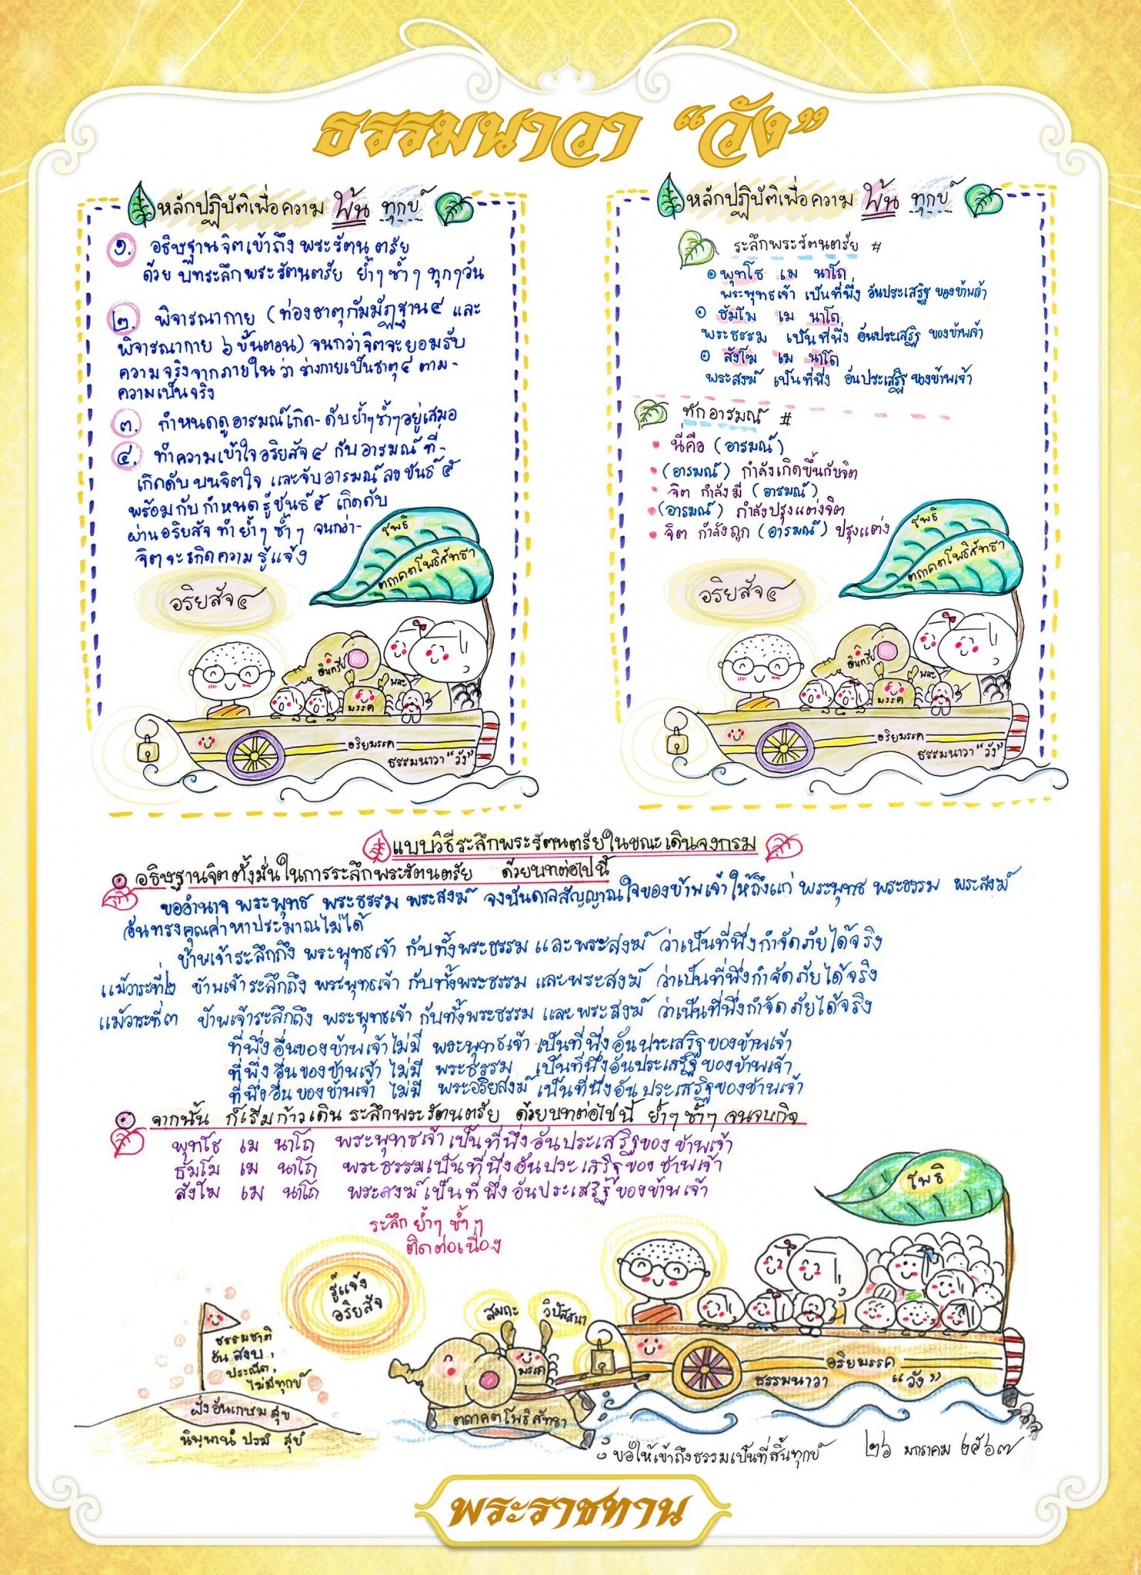 ธรรมนาวา “วัง”
หลักปฏิบัติเพื่อความ พ้น ทุกข์
๑. อธิษฐานจิตเข้าถึง พระรัตนตรัย
ด้วย บทระลึกพระรัตนตรัย ย้ำๆ ซ้ำๆ ทุกๆวัน
๒. พิจารณากาย (ท่องธาตุกัมมัฏฐาน๔ และ
พิจารณากาย ๖ ขั้นตอน) จนกว่าจิตจะยอมรับ
ความจริงจากภายในว่า ร่างกายเป็นธาตุ๔ ตาม-
ความเป็นจริง
๓. กำหนดดูอารมณ์เกิด-ดับย้ำๆซ้ำๆอยู่เสมอ
๔. ทำความเข้าใจอริยสัจ๔ กับอารมณ์ ที่-
เกิดดับบนจิตใจ และจับอารมณ์ลงขันธ์ ๕
พร้อมกับกำหนดรู้ขันธ์๕ เกิดดับ
ผ่านอริยสัจ ทำย้ำๆ ซ้ำๆ จนกว่า-
จิตจะเกิดความรู้แจ้ง
โพธิ
ตถาคตโพธิสัทธา
อริยสัจ๔
อินทรีย์
พละ
มรรค
อริยมรรค
ธรรมนาวา “วัง”
หลักปฏิบัติเพื่อความ พ้น ทุกข์
ระลึกพระรัตนตรัย #
๏ พุทโธ เม นาโถ
พระพุทธเจ้า เป็นที่พึ่ง อันประเสริฐ ของข้าพเจ้า
๏ ธัมโม เม นาโถ
พระธรรม เป็นที่พึ่ง อันประเสริฐ ของข้าพเจ้า
๏ สังโฆ เม นาโถ
พระสงฆ์ เป็นที่พึ่ง อันประเสริฐ ของข้าพเจ้า
ทักอารมณ์ #
• นี่คือ (อารมณ์)
• (อารมณ์) กำลังเกิดขึ้นกับจิต
• จิต กำลังมี (อารมณ์)
• (อารมณ์) กำลังปรุงแต่งจิต
• จิต กำลังถูก (อารมณ์) ปรุงแต่ง
โพธิ
ตถาคตโพธิสัทธา
อริยสัจ๔
อินทรีย์
พละ
มรรค
อริยมรรค
ธรรมนาวา “วัง”
แบบวิธีระลึกพระรัตนตรัยในขณะเดินจงกรม
อธิษฐานจิตตั้งมั่นในการระลึกพระรัตนตรัย ด้วยบทต่อไปนี้
ขออำนาจ พระพุทธ พระธรรม พระสงฆ์ จงบันดาลสัญญาณใจของข้าพเจ้าให้ถึงแก่ พระพุทธ พระธรรม พระสงฆ์
อันทรงคุณค่าหาประมาณไม่ได้
ข้าพเจ้าระลึกถึง พระพุทธเจ้า กับทั้งพระธรรม และพระสงฆ์ ว่าเป็นที่พึ่งกำจัดภัยได้จริง
แม้วาระที่๒ ข้าพเจ้าระลึกถึง พระพุทธเจ้า กับทั้งพระธรรม และพระสงฆ์ ว่าเป็นที่พึ่งกำจัดภัยได้จริง
แม้วาระที่๓ ข้าพเจ้าระลึกถึง พระพุทธเจ้า กับทั้งพระธรรม และพระสงฆ์ ว่าเป็นที่พึ่งกำจัดภัยได้จริง
ที่พึ่งอื่นของข้าพเจ้าไม่มี พระพุทธเจ้า เป็นที่พึ่งอันประเสริฐของข้าพเจ้า
ที่พึ่งอื่นของข้าพเจ้า ไม่มี พระธรรม เป็นที่พึ่งอันประเสริฐของข้าพเจ้า
ที่พึ่งอื่นของข้าพเจ้า ไม่มี พระอริยสงฆ์ เป็นที่พึ่งอันประเสริฐของข้าพเจ้า
จากนั้น ก็เริ่มก้าวเดิน ระลึกพระรัตนตรัย ด้วยบทต่อไปนี้ ย้ำๆ ซ้ำๆ จนจบกิจ
พุทโธ เม นาโถ พระพุทธเจ้าเป็นที่พึ่งอันประเสริฐของข้าพเจ้า
ธัมโม เม นาโถ พระธรรมเป็นที่พึ่งอันประเสริฐของข้าพเจ้า
สังโฆ เม นาโถ พระสงฆ์เป็นที่พึ่งอันประเสริฐของข้าพเจ้า
ระลึกย้ำๆ ซ้ำๆ
ติดต่อเนื่อง
โพธิ
รู้แจ้ง
อริยสัจ
สมถะ
วิปัสสนา
มรรค
ธรรมชาติ
อัน สงบ,
ประณีต,
ไม่มีทุกข์
ฝั่งอันเกษมสุข
นิพพานํ ปรมํ สุขํ
ตถาคตโพธิสัทธา
อริยมรรค
ธรรมนาวา “วัง”
ขอให้เข้าถึงธรรมเป็นที่สิ้นทุกข์ ๒๖ มกราคม ๒๕๖๗
พระราชทาน